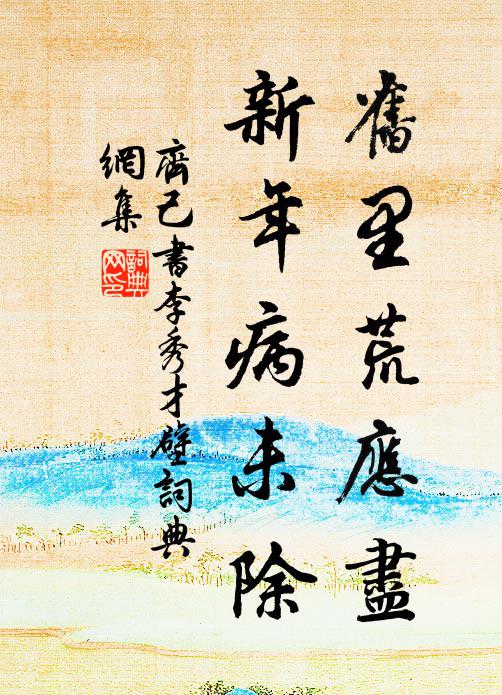 舊里荒應盡
新年病未除
齊己書李秀才壁詞典
網集
詞典
网印